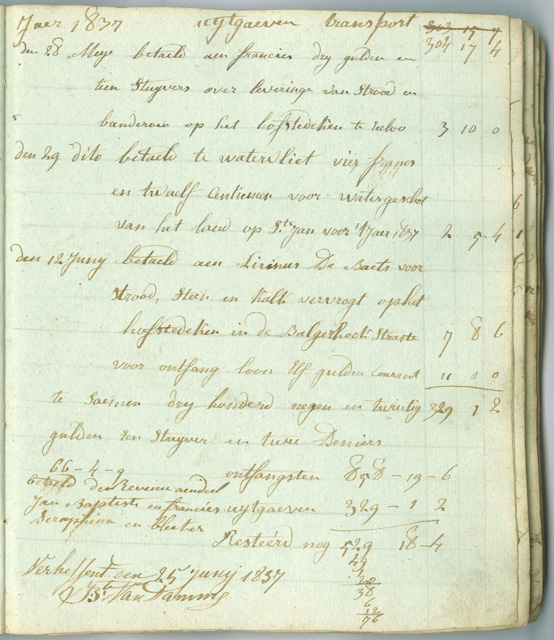 Jaer 1837 uytgaeven transport 303 17 4
304 17 4
den 28 Meye betaeld aen francies dry gulden en
tien Stuyvers over leveringe van Strood en
banderoen op het hofstedeken te Eecloo 3 10 0
den 29 dito betaeld te watervliet vier francs
en twaelf Centiemen voor watergeschot
van het land op St. Jan voor 't Jaer 1837 2 5 4
den 12 Juny betaeld aen Livinus De Baets voor
Strood, Steen en Kalk vervrogt op het
hofstedeken in de Balgerhoek Straete 7 8 6
voor ontfang loon Elf gulden Courant 11 0 0
te Saemen dry honderd negen en twintig 329 1 2
gulden Een Stuyver en twee Deniers
66-4-9 ontfangsten 858-19-6
betaeld den Revenu aen del
Jan Baptiste en francies uytgaeven 329-1 2
Seraphina en
Resteérd nog 529 18-4
Verheffent den 25 Juny 1837
J. Bte. Van Damme